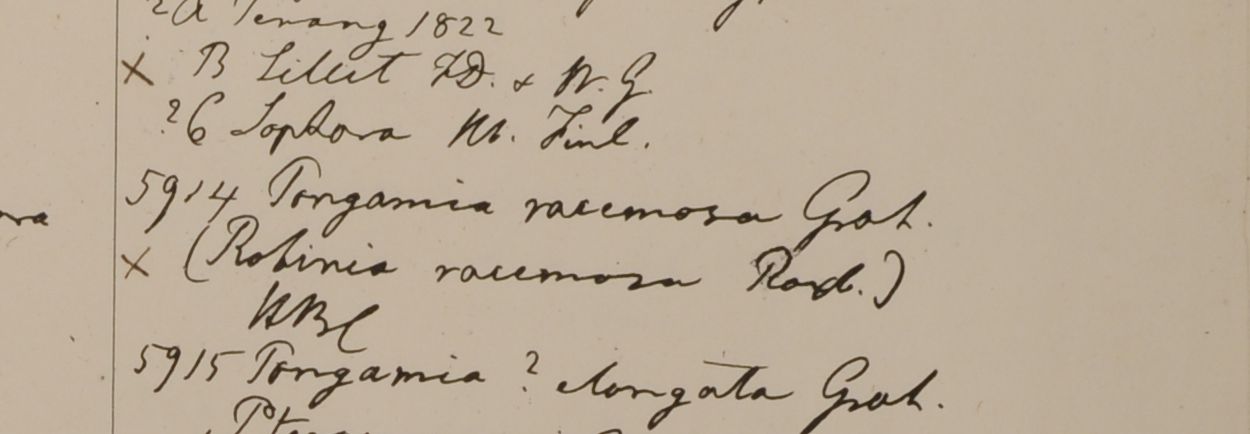 ?A Penang 1822
× B Sillet F.D. & W.G.
?C Sophora Hb. Finl.
5914 Pongamia racemosa Grah.
ora
× (Robinia racemosa Roxb.)
HBC
5915 Pongamia ? elongata Grah.